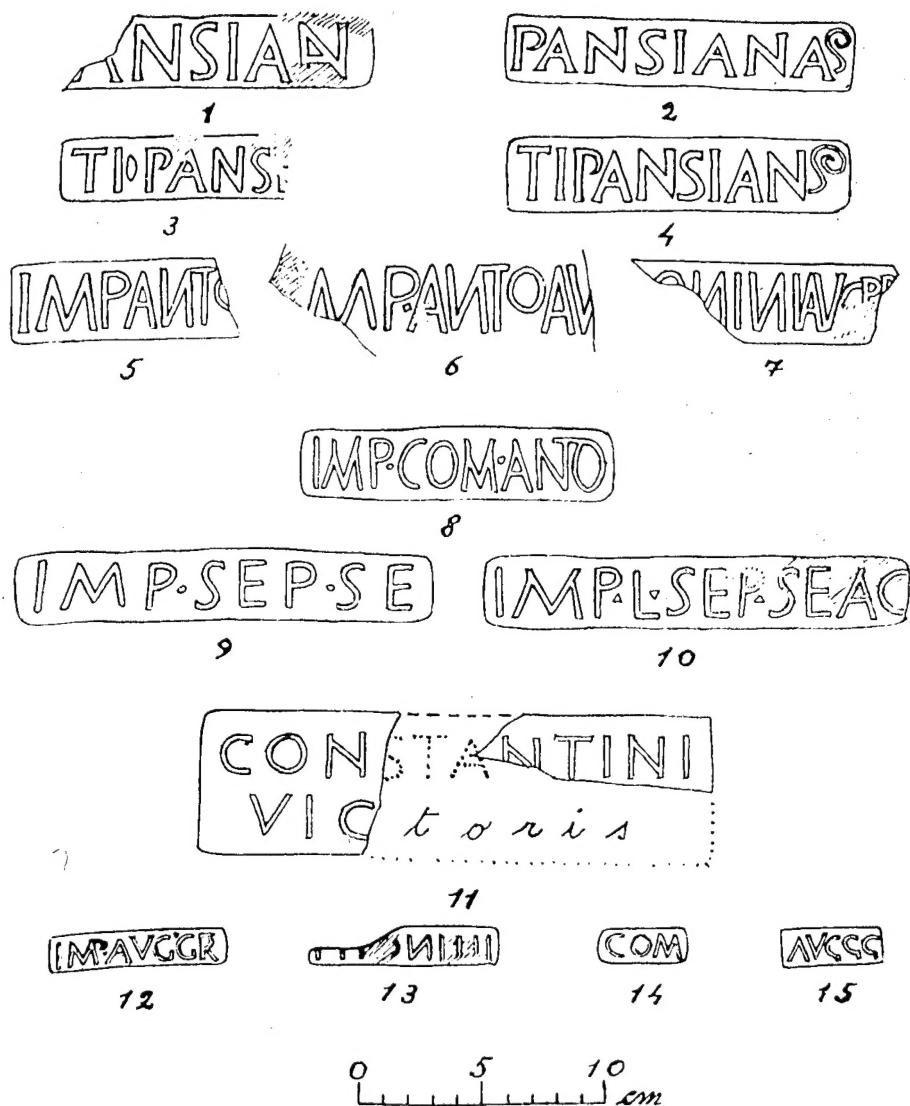 ANSIAN
PANSIANAS
1
2
TI·PANS
TIPANSIANS
3
4
IMPANTO
MP·ANTOAV
5
6
7
IMP·COM·ANTO
8
IMP·SEP·SE
IMP·L·SEP·SEAC
9
10
CONSTANTINI
VICtoris
11
IMP·AVGGR
COM
AVGGG
12
13
14
15
0 5 10
cm